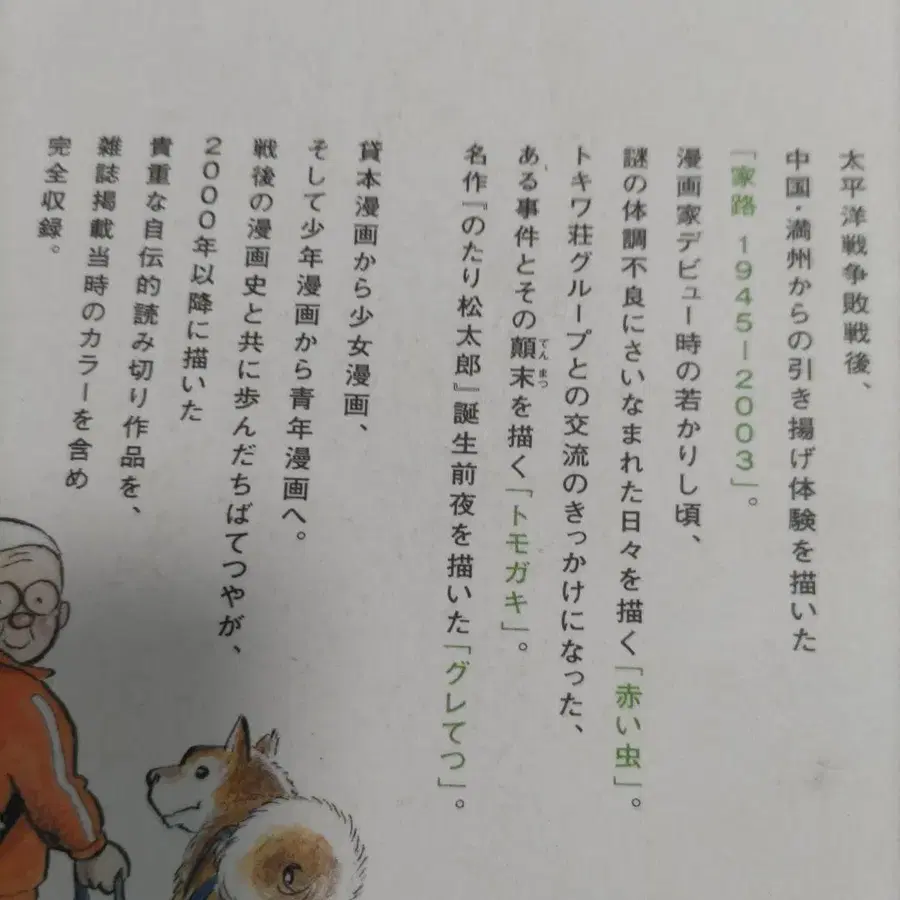 太平洋戦争敗戦後、
中国・満州からの引き揚げ体験を描いた
「家路 1945–2003」。
漫画家デビュー時の若かりし頃、
謎の体調不良にさいなまれた日々を描く「赤い虫」。
トキワ荘グループとの交流のきっかけになった、
ある事件とその顛末を描く「トモガキ」。
てんまつ
名作『のたり松太郎』誕生前夜を描いた「グレてつ」。
貸本漫画から少女漫画、
そして少年漫画から青年漫画へ。
戦後の漫画史と共に歩んだちばてつやが、
2000年以降に描いた
貴重な自伝的読み切り作品を、
雑誌掲載当時のカラーを含め
完全収録。